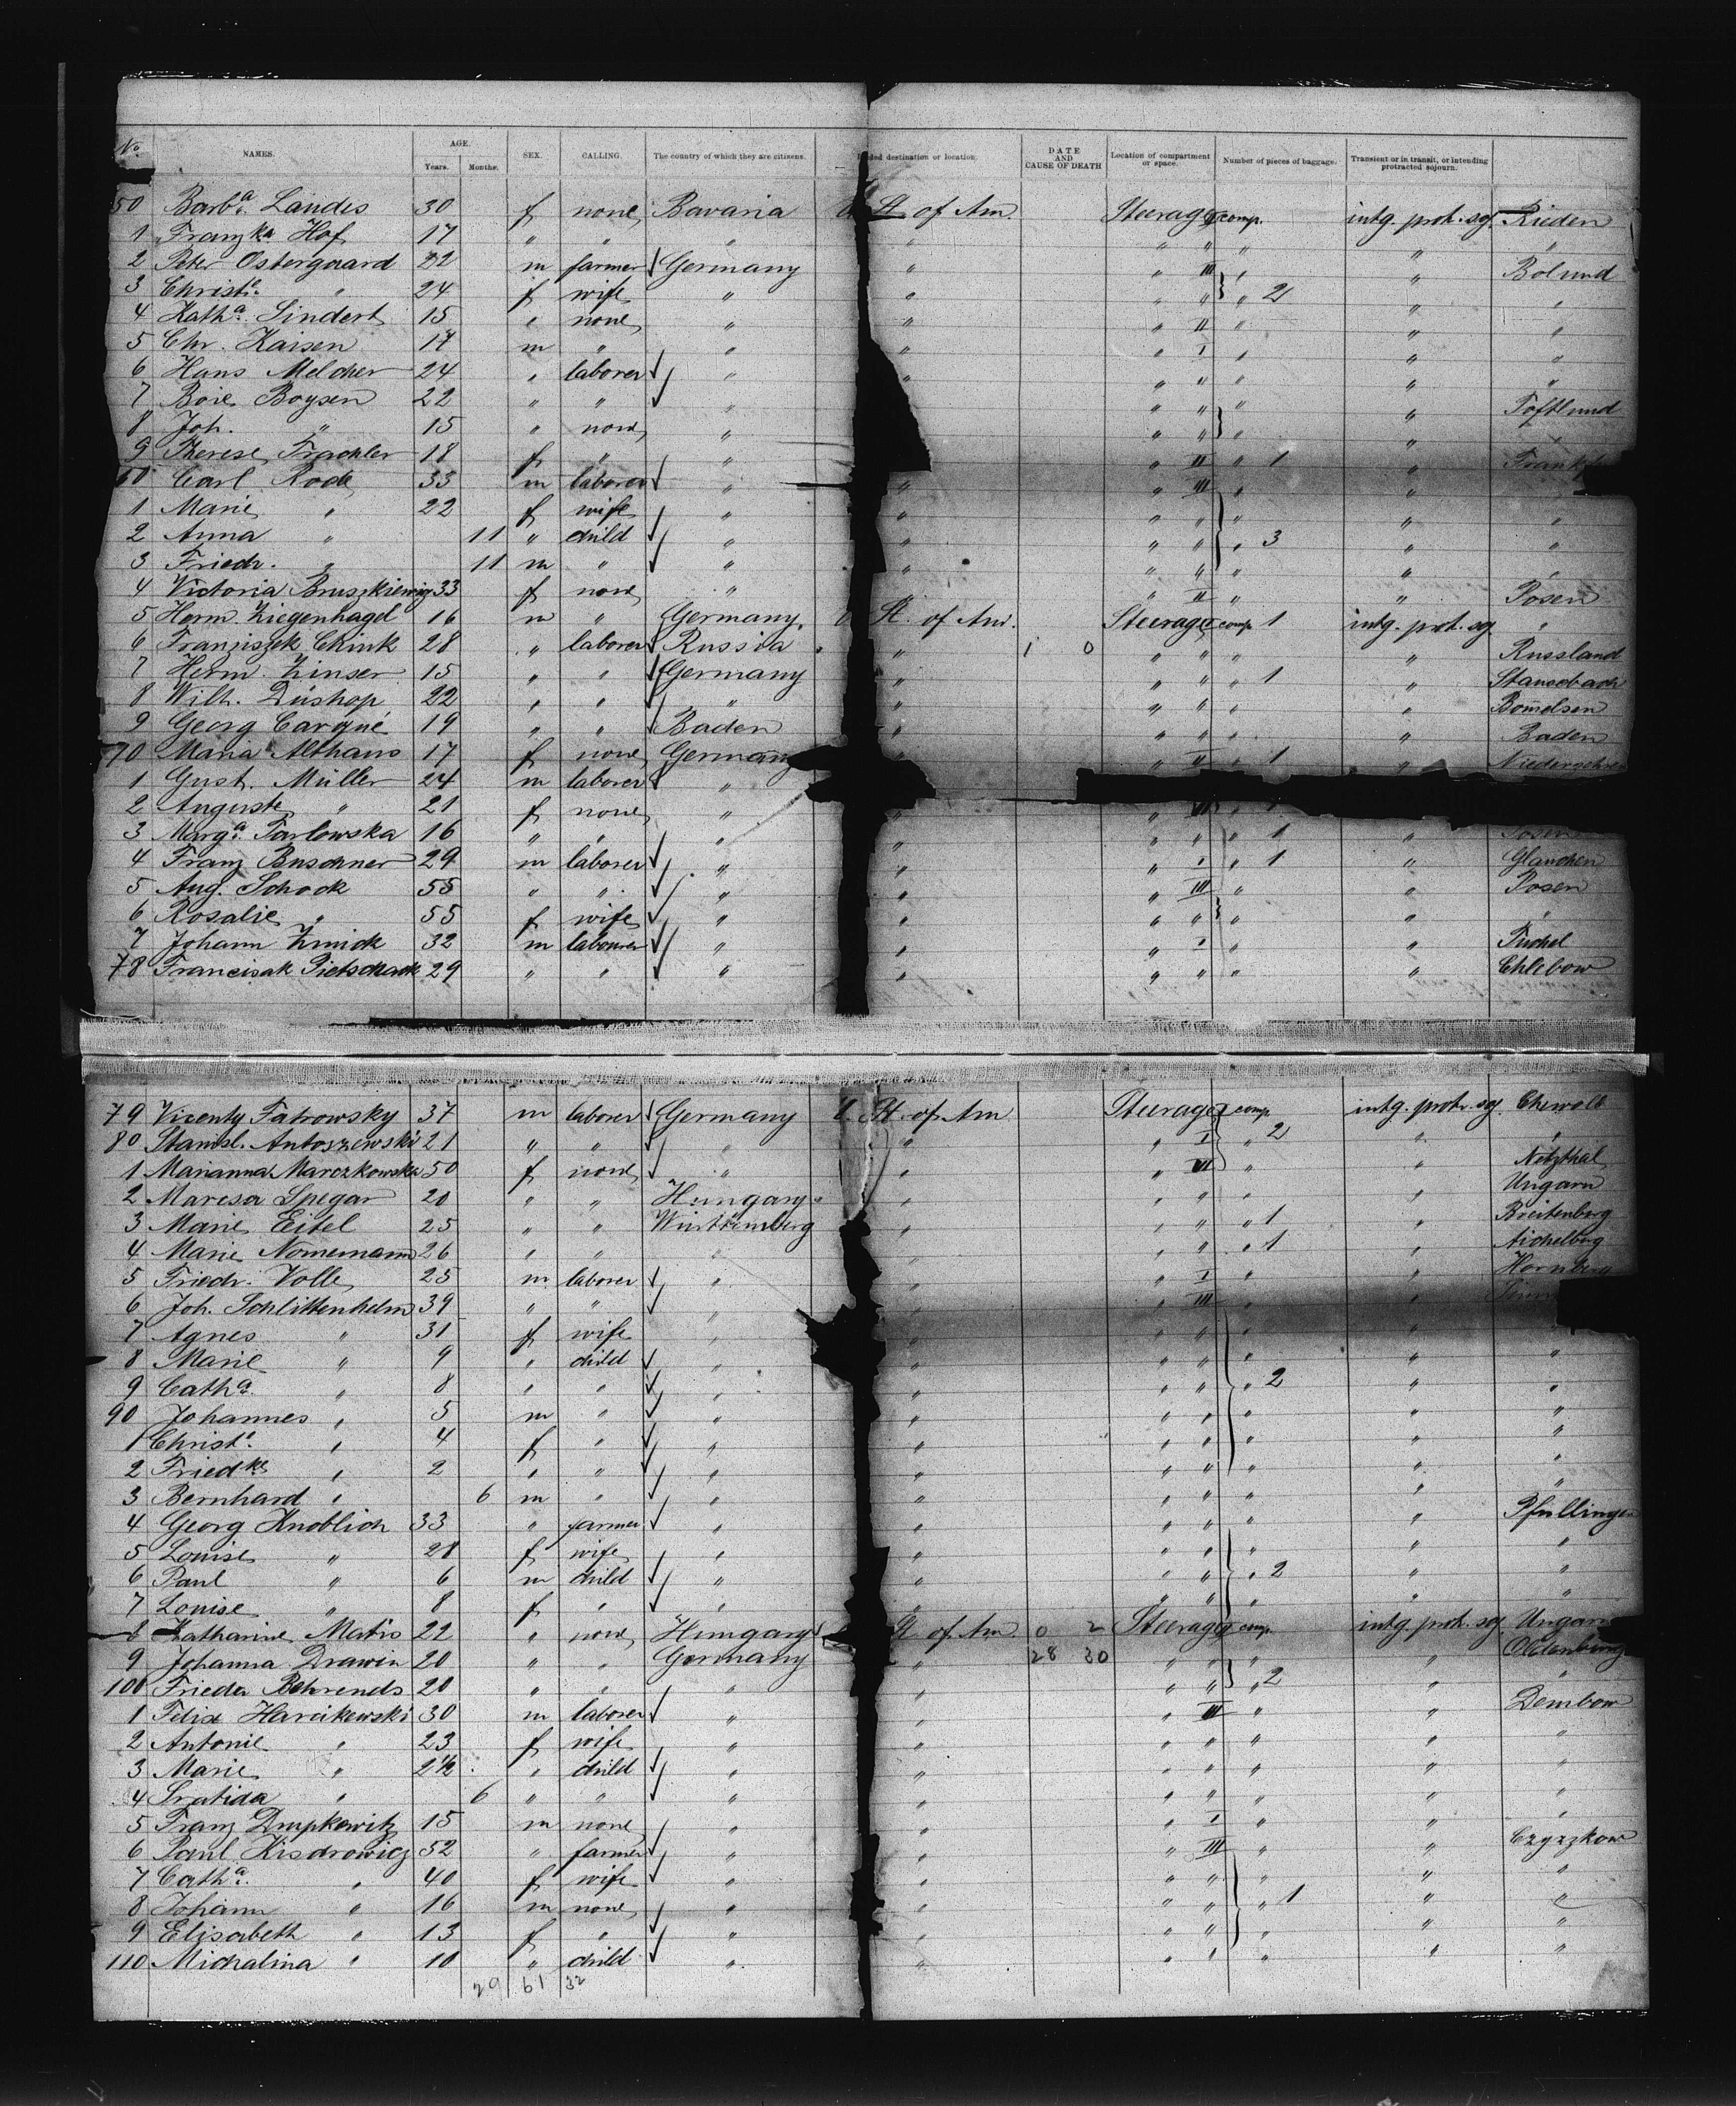 No. NAMES. AGE. Years. Months. SEX. CALLING. The country of which they are citizens. ded destination or location. DATE AND CAUSE OF DEATH Location of compartment or space. Number of pieces of baggage. Transient or in transit, or intending protracted sojourn.
50 Barba. Landes 30 f none Bavaria U St. of Am. Steerage comp. intg. prot. soj. Rieden
1 Franzka Hof 17 " " " " " " " " "
2 Peter Ostergaard 22 m farmer Germany " " III " " Bolund
3 Christe. " 24 f wife " " " " " 2 " "
4 Katha. Lindert 15 " none " " " II " " "
5 Chr. Kaisen 17 m " " " " I " " "
6 Hans Melcher 24 " laborer " " " " " " "
7 Boie Boysen 22 " " " " " " " Toftlund
8 Joh. " 15 " none " " " " " "
9 Therese Trachler 18 f " " " " II " 1 "
60 Carl Rode 33 m laborer " " " III " "
1 Marie " 22 f wife " " " " " " "
2 Anna " 11 " child " " " " " 3 " "
3 Friedr. " 11 m " " " " " " " "
4 Victoria 33 f none " " " II " " Posen
5 Herm. Ziegenhagel 16 m " Germany. U St. of Am. Steerage comp 1 intg. prot. soj "
6 Franziszek Chink 28 " laborer Russia " 1 0 " " " " Russland
7 Herm. Zinser 15 " " Germany " " " " 1 "
8 Wilh. Düshop 22 " " " " " " " " Bomelsen
9 Georg Carqué 19 " " Baden " " " " " Baden
70 Maria Althaus 17 f none Germany " II " 1 "
1 Gust. Müller 24 m laborer "
2 Auguste " 21 f none " " " III
3 Marga. Parlowska 16 " " " " " " " 1 " Posen
4 Franz Buschner 29 m laborer " " " I " 1 " Glauchen
5 Aug. Schock 55 " " " " " III " " Posen
6 Rosalie " 55 f wife " " " " " " "
7 Johann Zmick 32 m labourer " " " I " " Tuchel
78 Francisak Pietschack 29 " " " " " " " " Chlebow
79 Vicenty Tatrowsky 37 m laborer Germany U. St. of Am Steerage comp intg. prot. soj. Chewolt
80 Stanisl. Antoszewski 21 " " " " " I " 2 " "
1 Marianna Marczkowska 50 f none " " " III " " Netzthal
2 Maresa Spegar 20 " " Hungary " " " " Ungarn
3 Marie Eitel 25 " " Württemberg " " " " 1 " Breitenberg
4 Marie Nonnemann 26 " " " " " " " 1 " Aichelberg
5 Friedr. Volle 25 m laborer " " " I " " Hornberg
6 Joh. Schlittenhelm 39 " " " " " III " "
7 Agnes " 31 f wife " " " " " "
8 Marie " 9 " child " " " " " " "
9 Catha. " 8 " " " " " " " 2 " "
90 Johannes " 5 m " " " " " " " "
1 Christe. " 4 f " " " " " " " "
2 Friedke " 2 " " " " " " " " "
3 Bernhard " 6 m " " " " " " " "
4 Georg Knoblich 33 " farmer " " " " " " Pfullingen
5 Louise " 28 f wife " " " " " " "
6 Paul " 6 m child " " " " " 2 " "
7 Louise " 8 f " " " " " " " "
8 Katharine Matis 22 " none Hungary St. of Am. 0 2 Steerage comp. intg. prot. soj. Ungarn
9 Johanna Drawin 20 " " Germany " 28 30 " " " " Oldenburg
100 Frieda Behrends 20 " " " " " " " 2 " "
1 Felix Harcikewski 30 m laborer " " " III " " Dembow
2 Antonie " 23 f wife " " " " " " "
3 Marie " 2 1/2 " child " " " " " " "
4 " 6 " " " " " " " " "
5 Franz Drupkewitz 15 m none " " " I " " "
6 Paul Kisdrowicz 52 " farmer " " " III " " Czyrzkow
7 Catha. " 40 f wife " " " " " " "
8 Johann " 16 m none " " " " " 1 " "
9 Elisabeth " 13 f " " " " " " " "
110 Michalina " 10 " child " " " " " " "
29 61 32